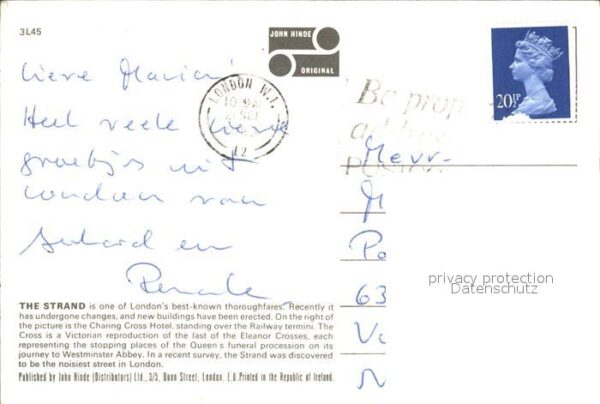 3L45
JOHN HINDE
ORIGINAL
LONDON W.1.
12
20½P
Be prop
Lieve
Heel veel lieve
groetjes uit
London van
en
Renate
Mevr.
M
Po
63
V
N
privacy protection
Datenschutz
THE STRAND is one of London's best-known thoroughfares. Recently it
has undergone changes, and new buildings have been erected. On the right of
the picture is the Charing Cross Hotel, standing over the Railway termini. The
Cross is a Victorian reproduction of the last of the Eleanor Crosses, each
representing the stopping places of the Queen's funeral procession on its
journey to Westminster Abbey. In a recent survey, the Strand was discovered
to be the noisiest street in London.
Published by John Hinde (Distributors) Ltd., 3/5, Dunn Street, London. E.8. Printed in the Republic of Ireland.